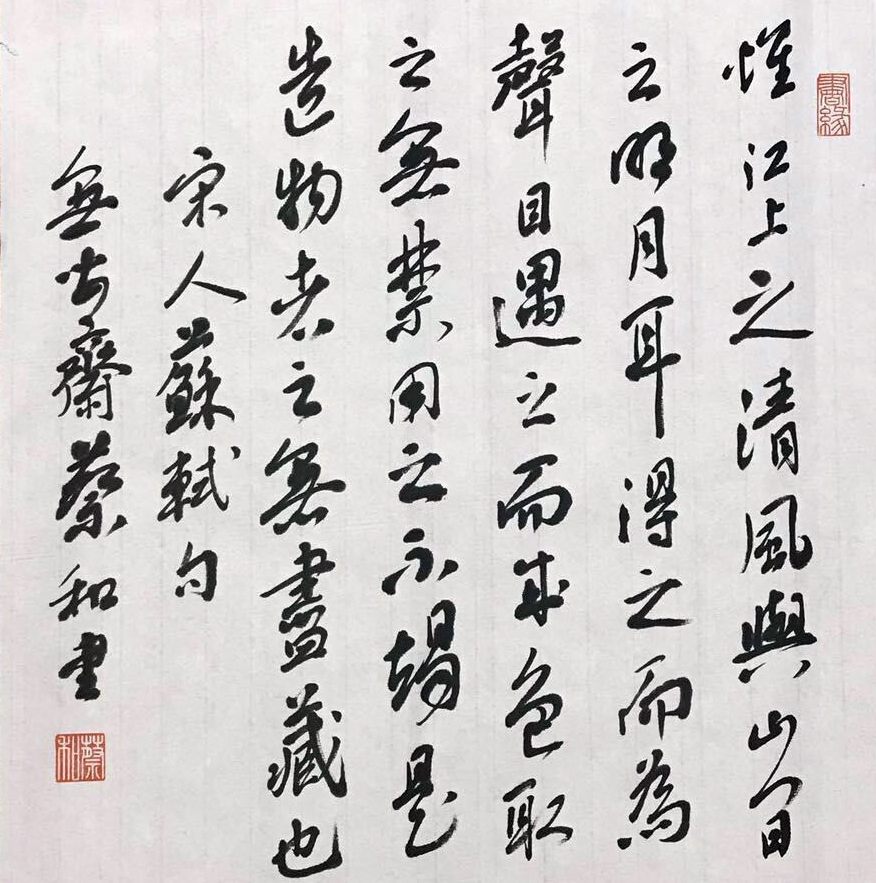 書緣
惟江上之清風與山間
之明月耳得之而為
聲目遇之而成色取
之無禁用之不竭是
造物者之無盡藏也
宋人蘇軾句
無齋蔡和書
蔡和